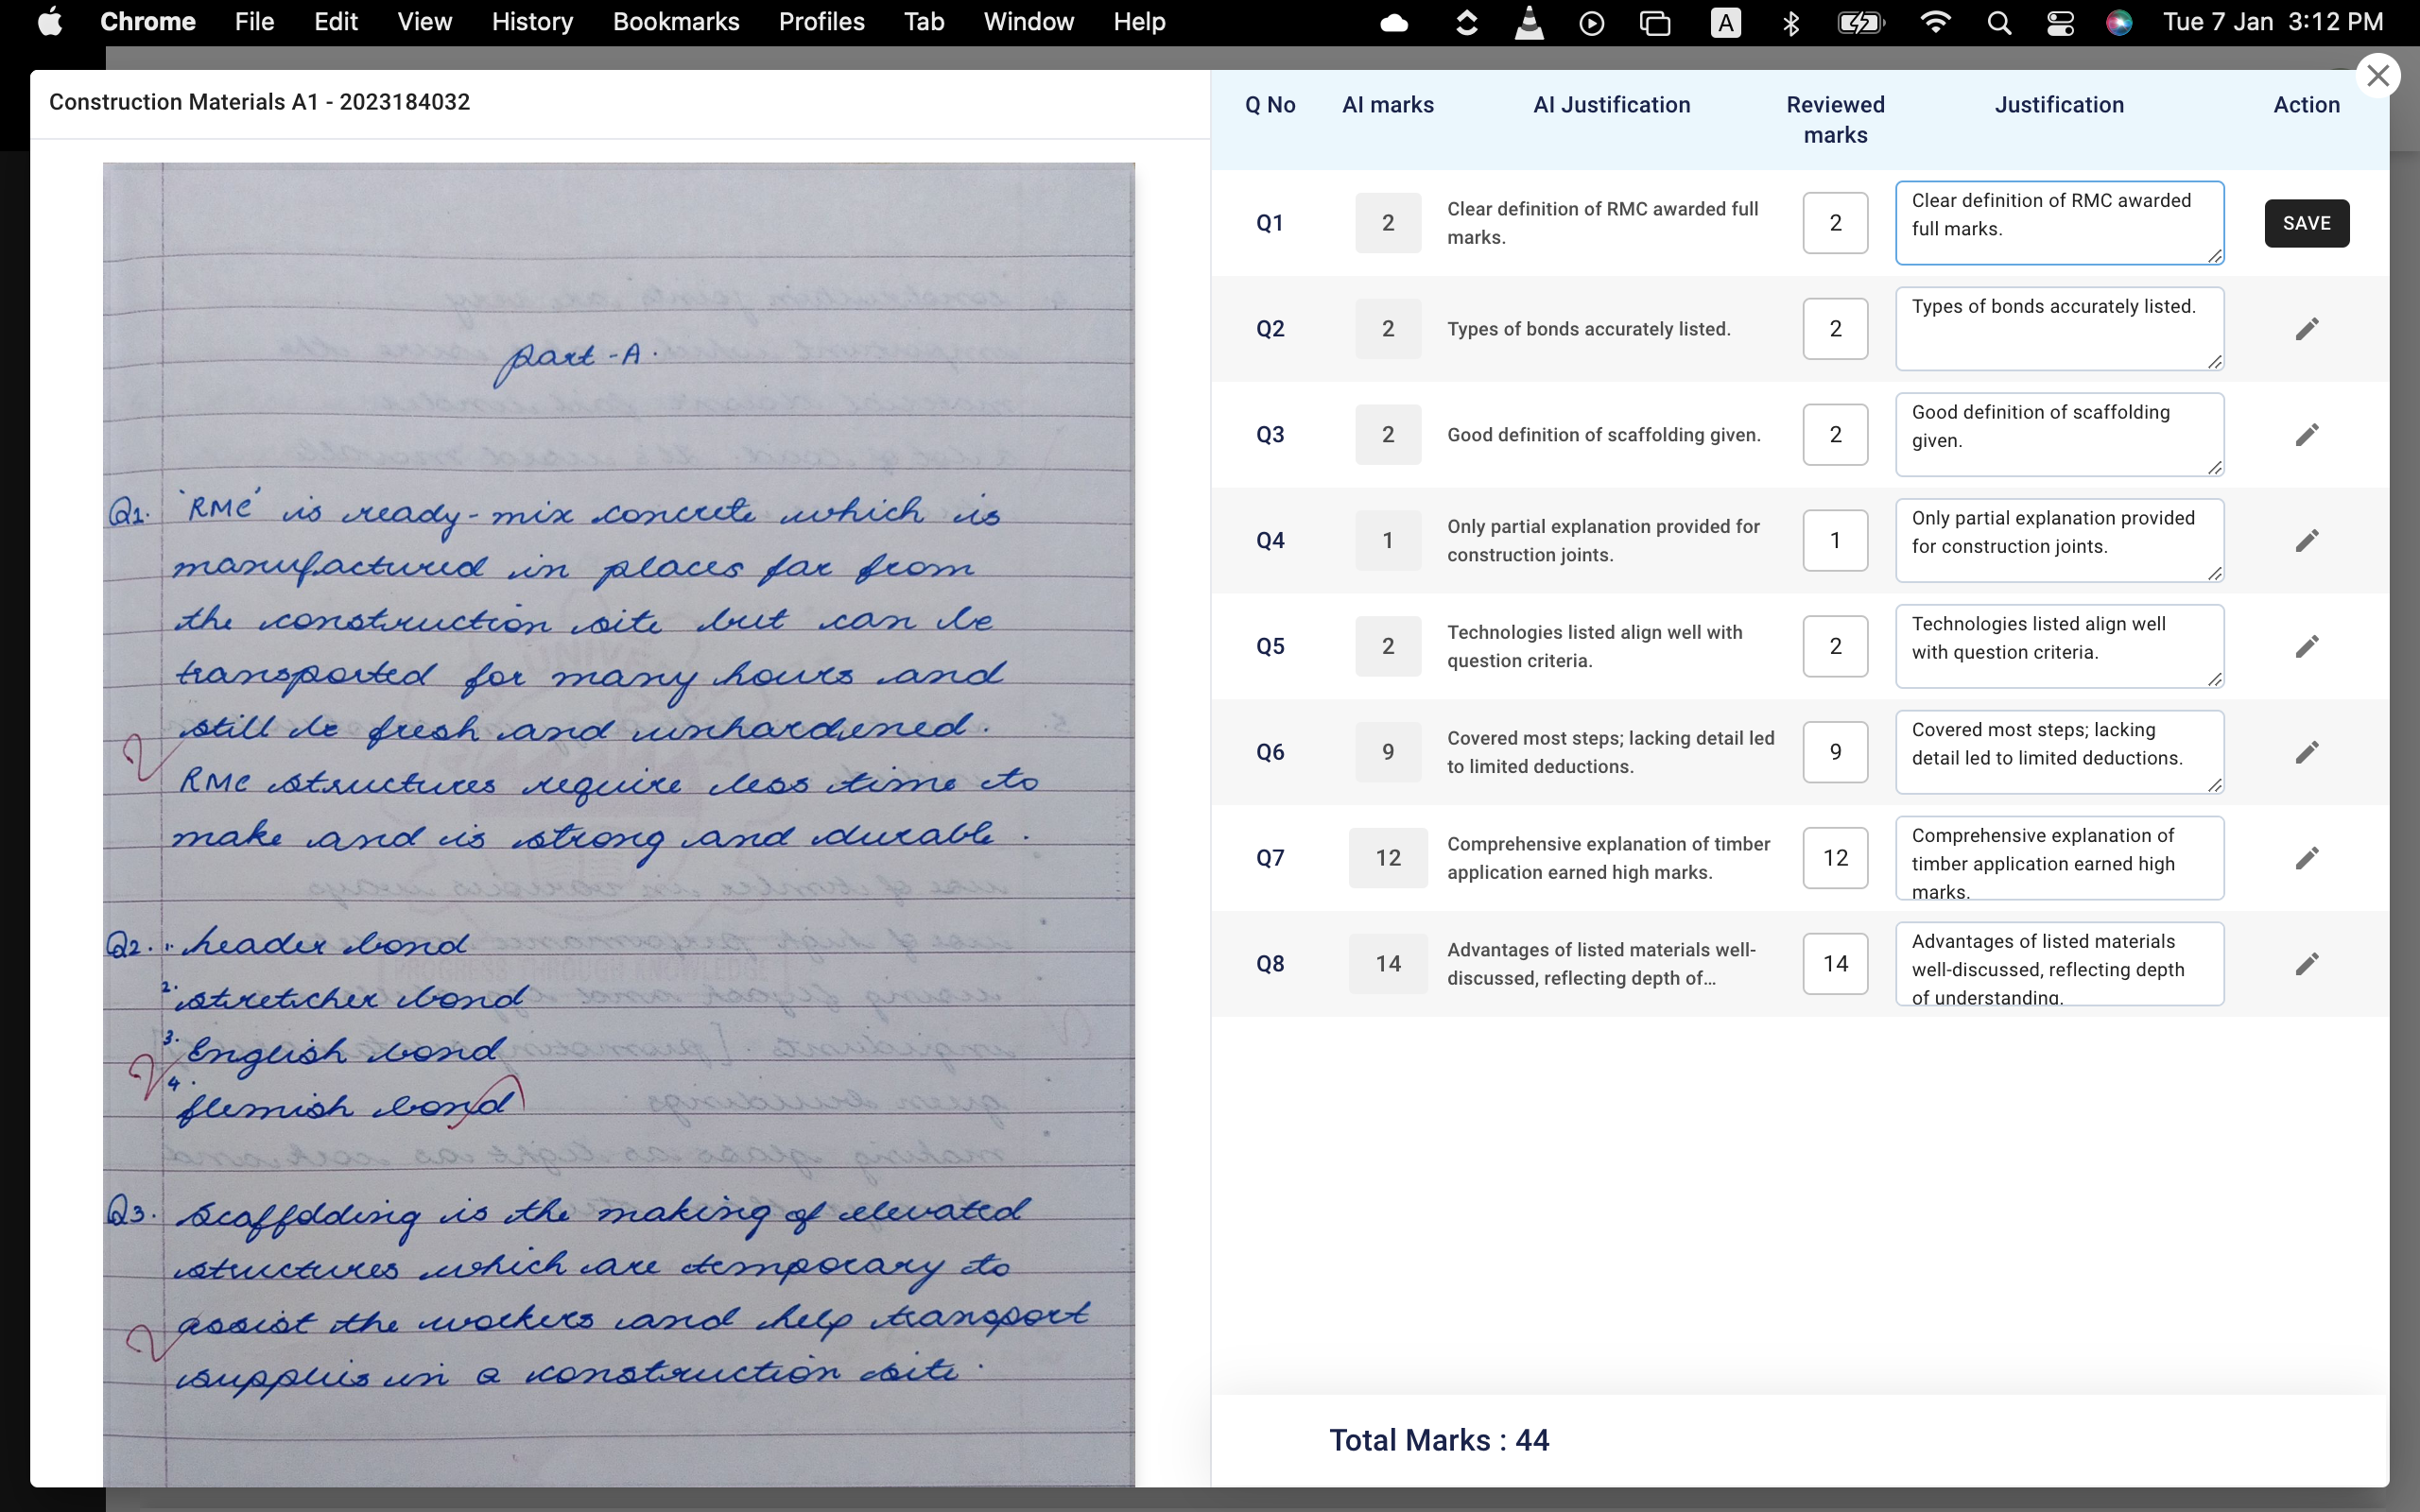 Chrome File Edit View History Bookmarks Profiles Tab Window Help A Tue 7 Jan 3:12 PM
Construction Materials A1 - 2023184032
part -A.
Q1. 'RMC' is ready-mix concrete which is
manufactured in places far from
the construction site but can be
transported for many hours and
still be fresh and unhardened.
2
RMC structures require less time to
make and is strong and durable.
Q2. 1. header bond
2. stretcher bond
3. English bond
2
4. flemish bond
PROGRESS THROUGH KNOWLEDGE
Q3. Scaffolding is the making of elevated
structures which are temporary to
2 assist the workers and help transport
supplies in a construction site.
Q No AI marks AI Justification Reviewed marks Justification Action
Q1 2 Clear definition of RMC awarded full
marks.
2 Clear definition of RMC awarded
full marks.
SAVE
Q2 2 Types of bonds accurately listed. 2 Types of bonds accurately listed.
Q3 2 Good definition of scaffolding given. 2 Good definition of scaffolding
given.
Q4 1 Only partial explanation provided for
construction joints.
1 Only partial explanation provided
for construction joints.
Q5 2 Technologies listed align well with
question criteria.
2 Technologies listed align well
with question criteria.
Q6 9 Covered most steps; lacking detail led
to limited deductions.
9 Covered most steps; lacking
detail led to limited deductions.
Q7 12 Comprehensive explanation of timber
application earned high marks.
12 Comprehensive explanation of
timber application earned high
marks.
Q8 14 Advantages of listed materials well-
discussed, reflecting depth of...
14 Advantages of listed materials
well-discussed, reflecting depth
of understanding.
Total Marks : 44